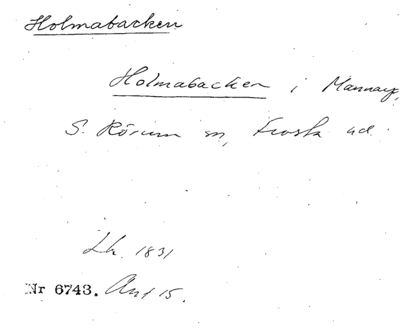 Holmabacken
Holmabacken i Mannarp,
S. Rörum sn, Frosta hd.
Lk. 1831
Nr 6743. Akt 15.